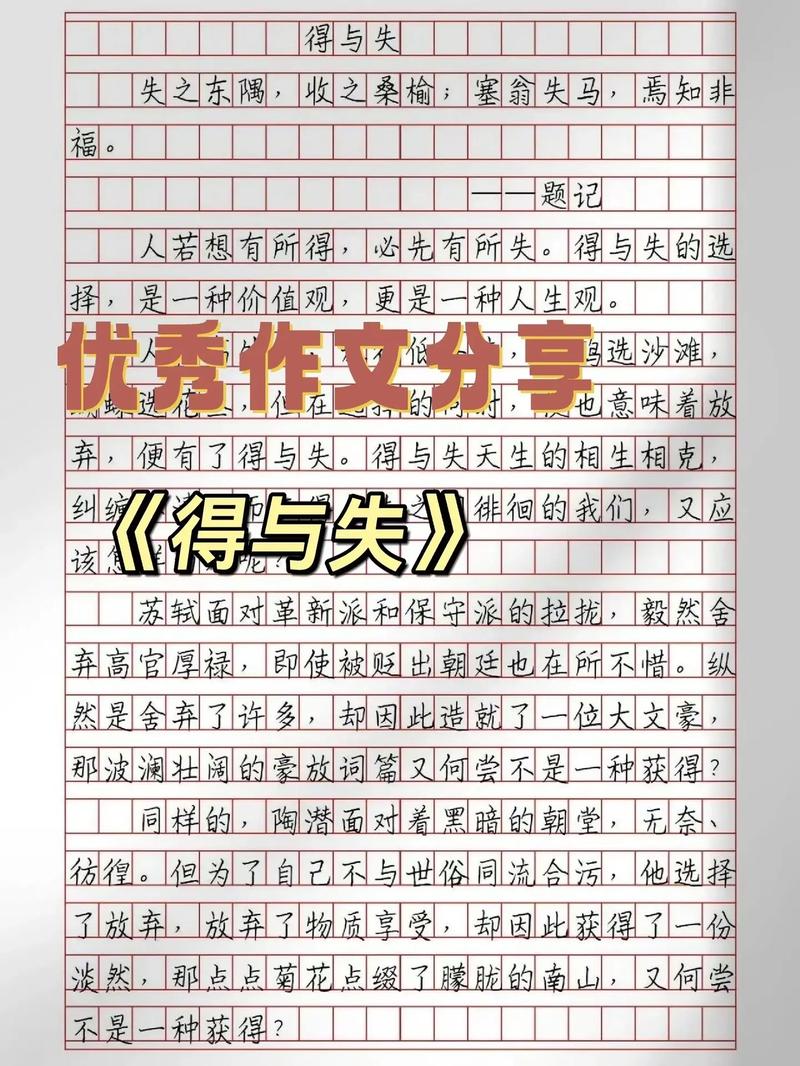 得与失
失之东隅，收之桑榆；塞翁失马，焉知非
福。
——题记
人若想有所得，必先有所失。得与失的选
择，是一种价值观，更是一种人生观。
优秀作文分享
人　低　选沙滩，
选花　，但在　的同时，　也意味着放
弃，便有了得与失。得与失天生的相生相克，
纠缠　徘徊的我们，又应
《得与失》
该怎　呢？
苏轼面对革新派和保守派的拉拢，毅然舍
弃高官厚禄，即使被贬出朝廷也在所不惜。纵
然是舍弃了许多，却因此造就了一位大文豪，
那波澜壮阔的豪放词篇又何尝不是一种获得？
同样的，陶潜面对着黑暗的朝堂，无奈、
彷徨。但为了自己不与世俗同流合污，他选择
了放弃，放弃了物质享受，却因此获得了一份
淡然，那点点菊花点缀了朦胧的南山，又何尝
不是一种获得？